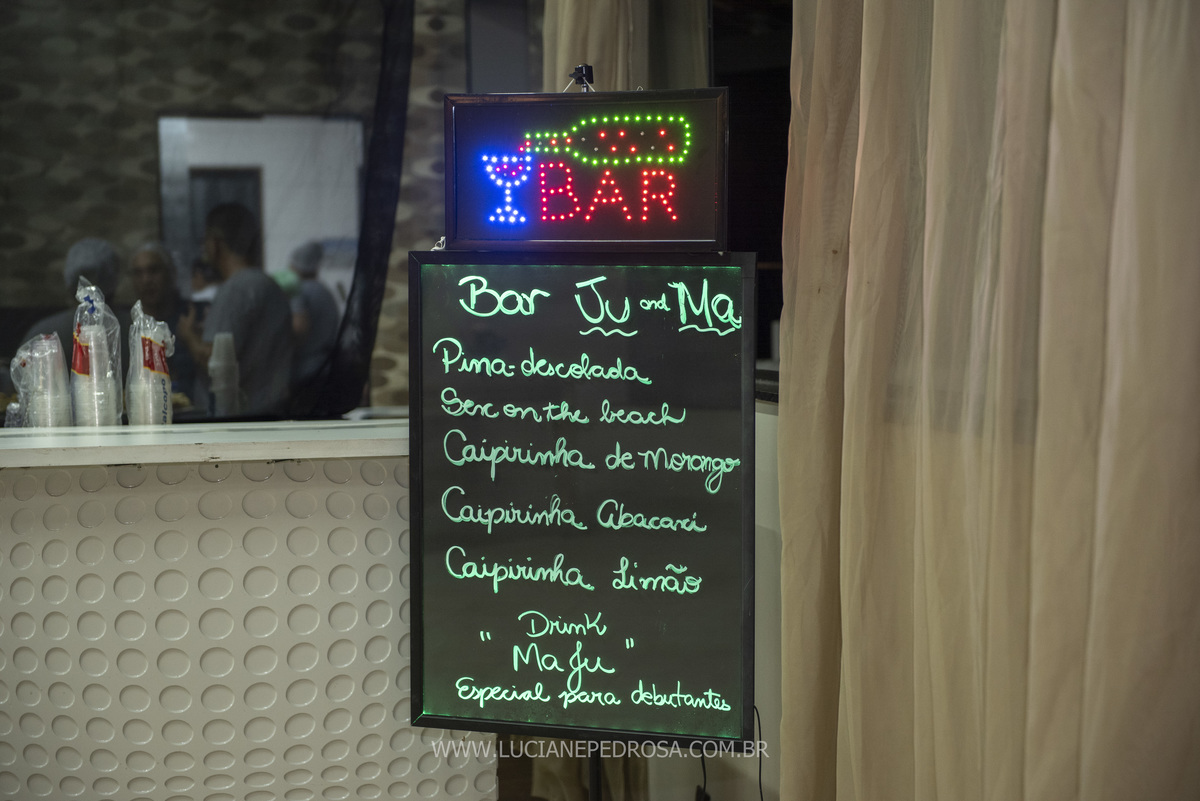 BAR
Bar Ju and Ma
Pina-descolada
Sex on the beach
Caipirinha de Morango
Caipirinha Abacaxi
Caipirinha Limão
Drink
" Ma Ju "
Especial para debutantes
WWW.LUCIANEPEDROSA.COM.BR